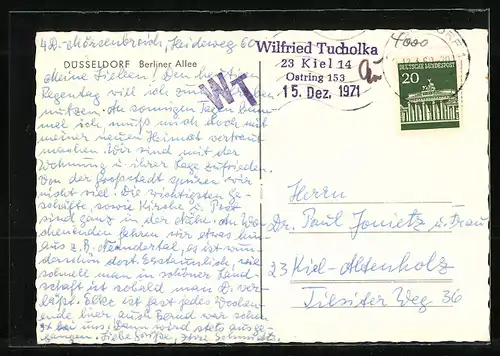 4D.-Mörsenbroich, Heideweg 60
DÜSSELDORF Berliner Allee
Meine Lieben! Den heutigen
Regentag will ich zum
nutzen. An sonnigen Tagen
mal ich muß mich doch mit
meiner neuen Heimat vertraut
machen. Wir sind mit der
Wohnung u. ihrer Lage zufrieden.
Von der Großstadt spüren wir
nicht viel. Die wichtigsten Ge-
schäfte, sowie Kirche u. Post
sind ganz in der Nähe. An Wo-
chenenden fahren wir etwas hin-
aus z.B. Neandertal, es ist wun-
derschön dort. Erstaunlich, wie
schnell man in schöner Land-
schaft ist sobald man D. ver-
läßt. Elke ist fast jedes Wochen-
ende hier auch Bernd war schon
bei uns. Dann wird stets ausge-
gangen. Liebe Grüße, Ihre
WT
Wilfried Tucholka
23 Kiel 14
Ostring 153
15. Dez. 1971
4000
DEUTSCHE BUNDESPOST
20
Herrn
Dr. Paul Jonietz u. Frau
23 Kiel-Altenholz
Tilsiter Weg 36